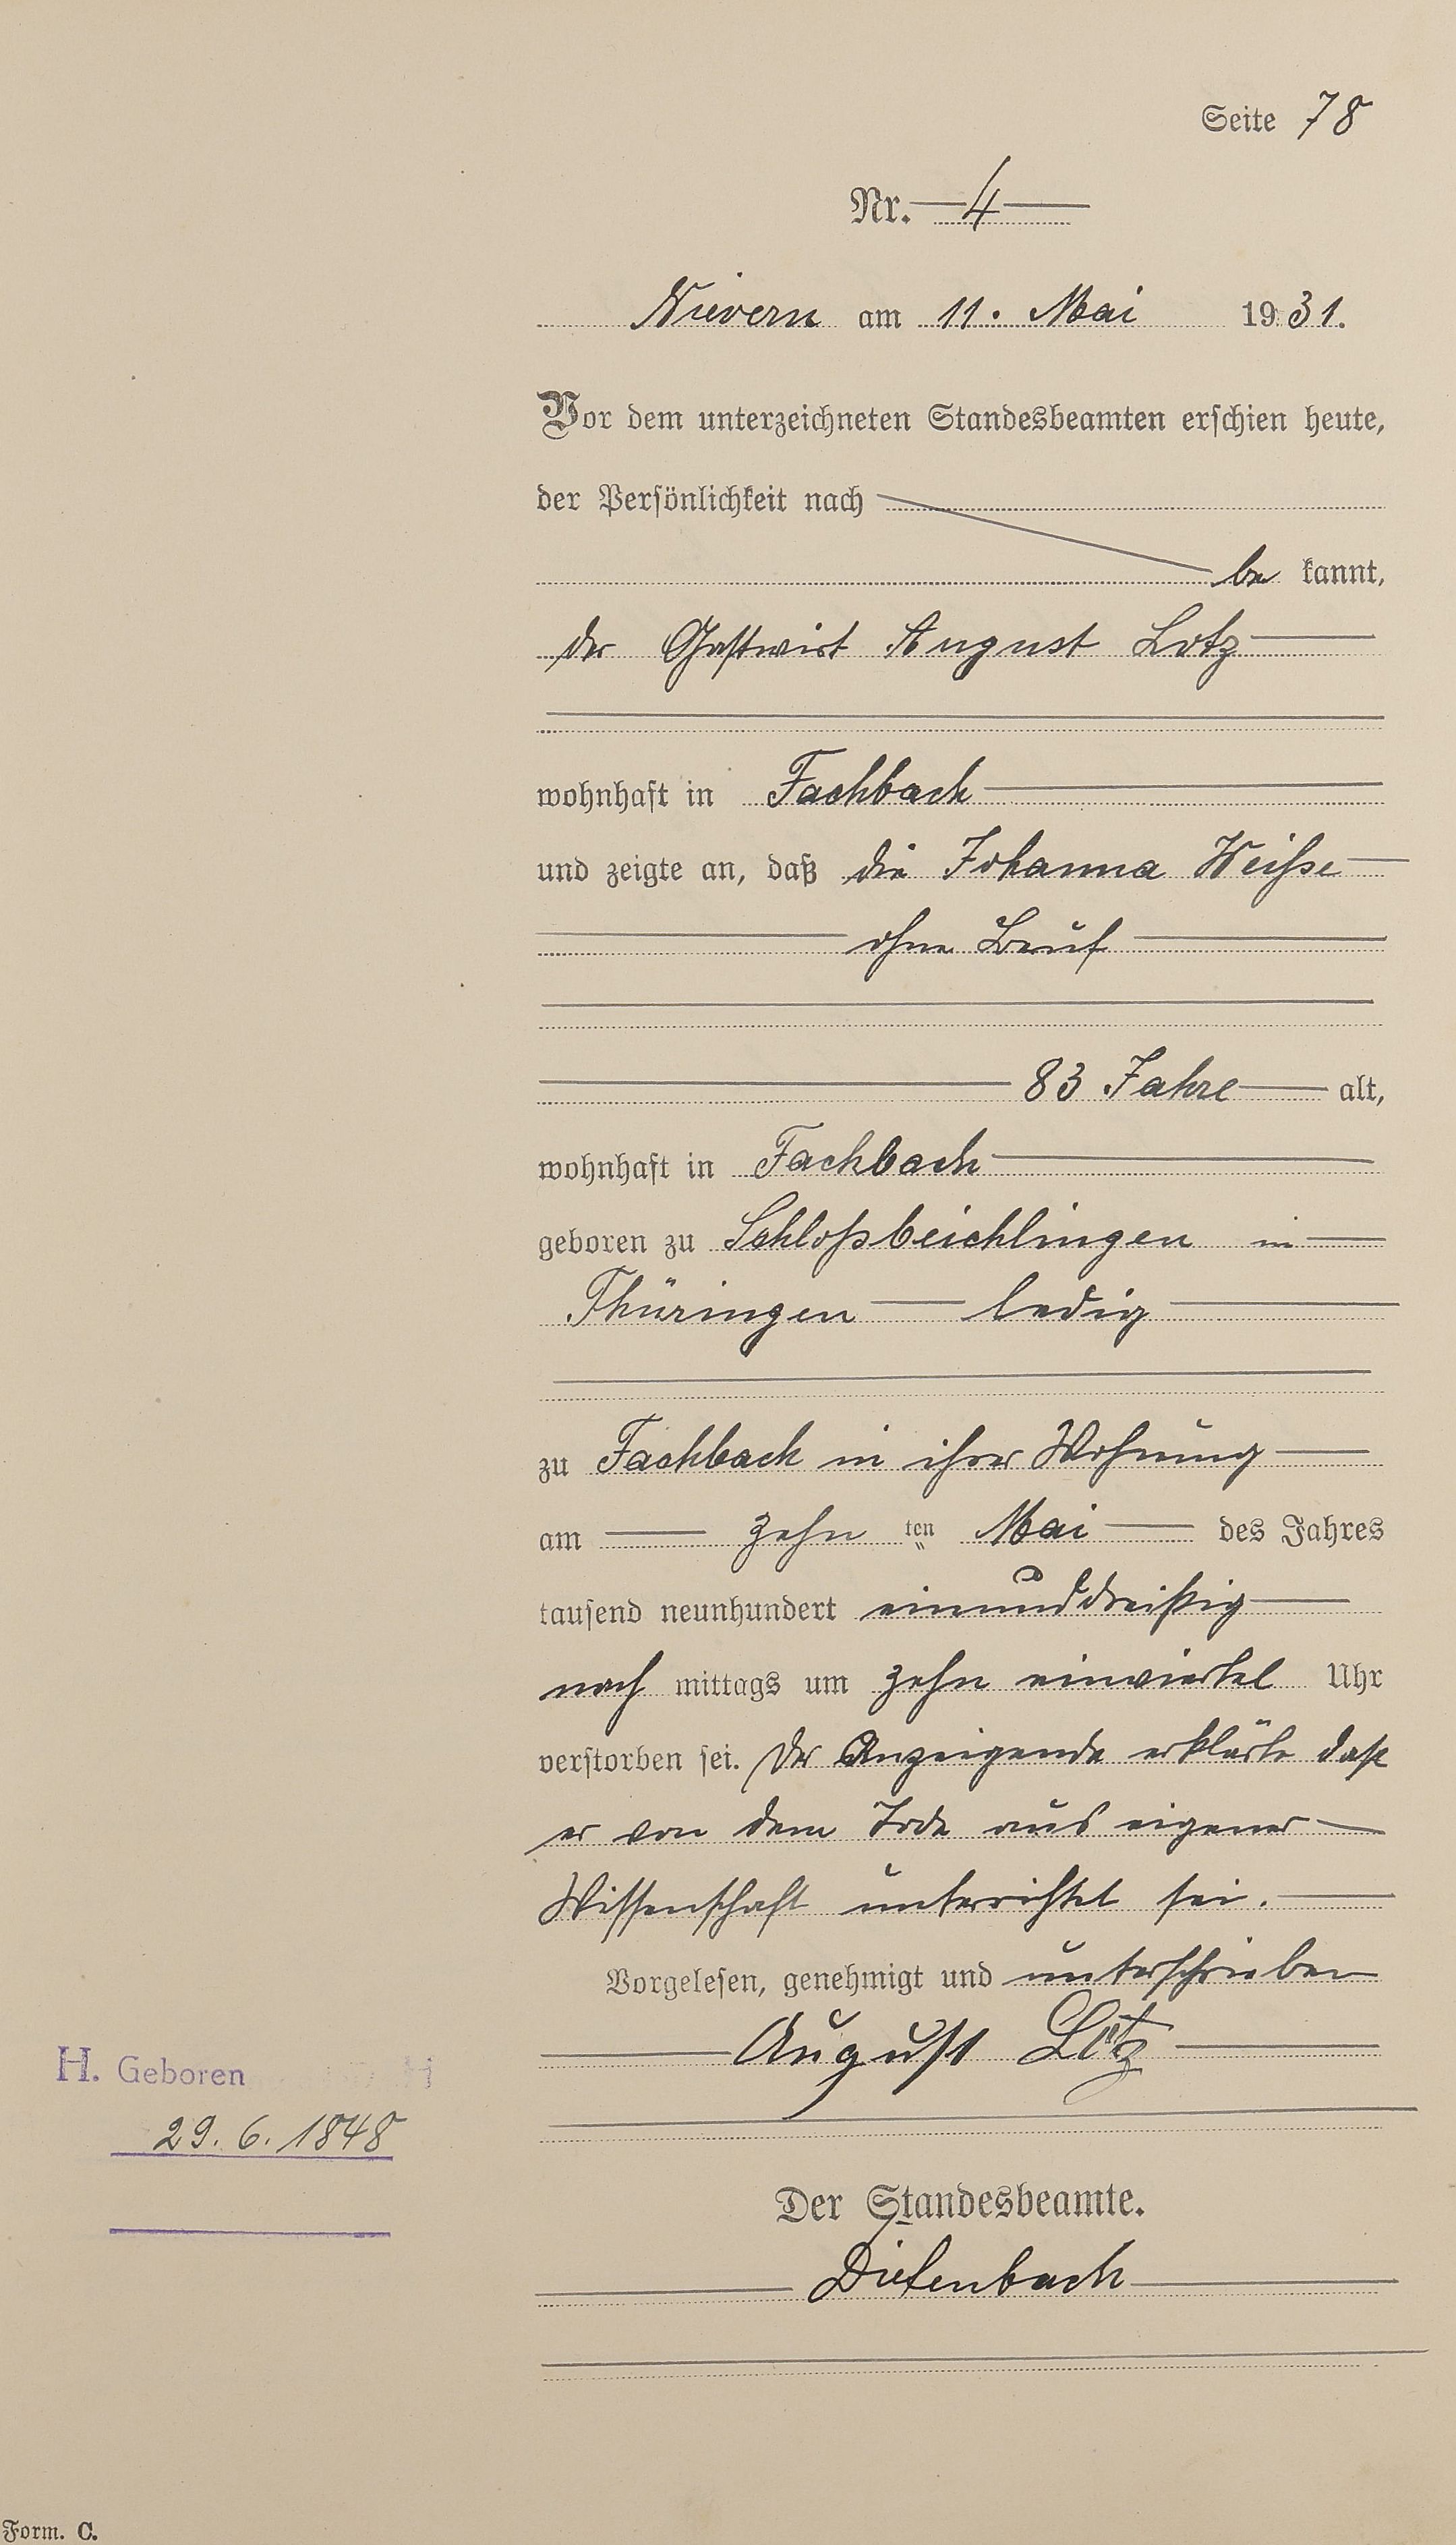 Seite 78
Nr. 4
Nievern am 11. Mai 1931.
Vor dem unterzeichneten Standesbeamten erschien heute,
der Persönlichkeit nach
be kannt,
der Gastwirt August Lotz
wohnhaft in Fachbach
und zeigte an, daß die Johanna Weiße
ohne Beruf
83 Jahre alt,
wohnhaft in Fachbach
geboren zu Schloßbeichlingen in
Thüringen ledig
zu Fachbach in ihrer Wohnung
am zehn ten Mai des Jahres
tausend neunhundert einunddreißig
nach mittags um zehn einviertel Uhr
verstorben sei. Der Anzeigende erklärte daß
er von dem Tode aus eigener
Wissenschaft unterrichtet sei.
Vorgelesen, genehmigt und unterschrieben
August Lotz
H. Geboren
29. 6. 1848
Der Standesbeamte.
Diefenbach
Form. C.